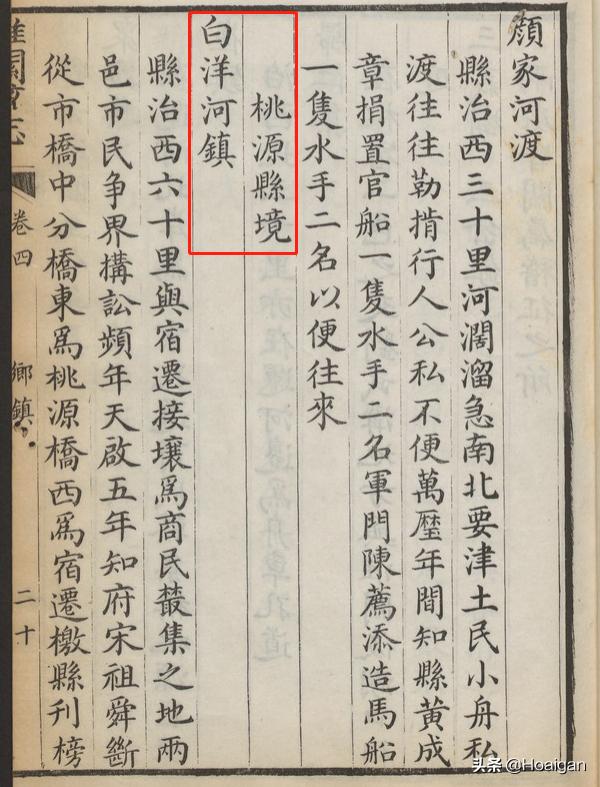 顏家河渡
縣治西三十里河濶溜急南北要津土民小舟私
渡往往勒掯行人公私不便萬曆年間知縣黃成
章捐置官船一隻水手二名軍門陳薦添造馬船
一隻水手二名以便往來
桃源縣境
白洋河鎮
縣治西六十里與宿遷接壤爲商民叢集之地兩
邑市民争界搆訟頻年天啟五年知府宋祖舜斷
從市橋中分橋東爲桃源橋西爲宿遷檄縣刊榜
卷四
鄉鎮
二十
头条 @Hoaigan